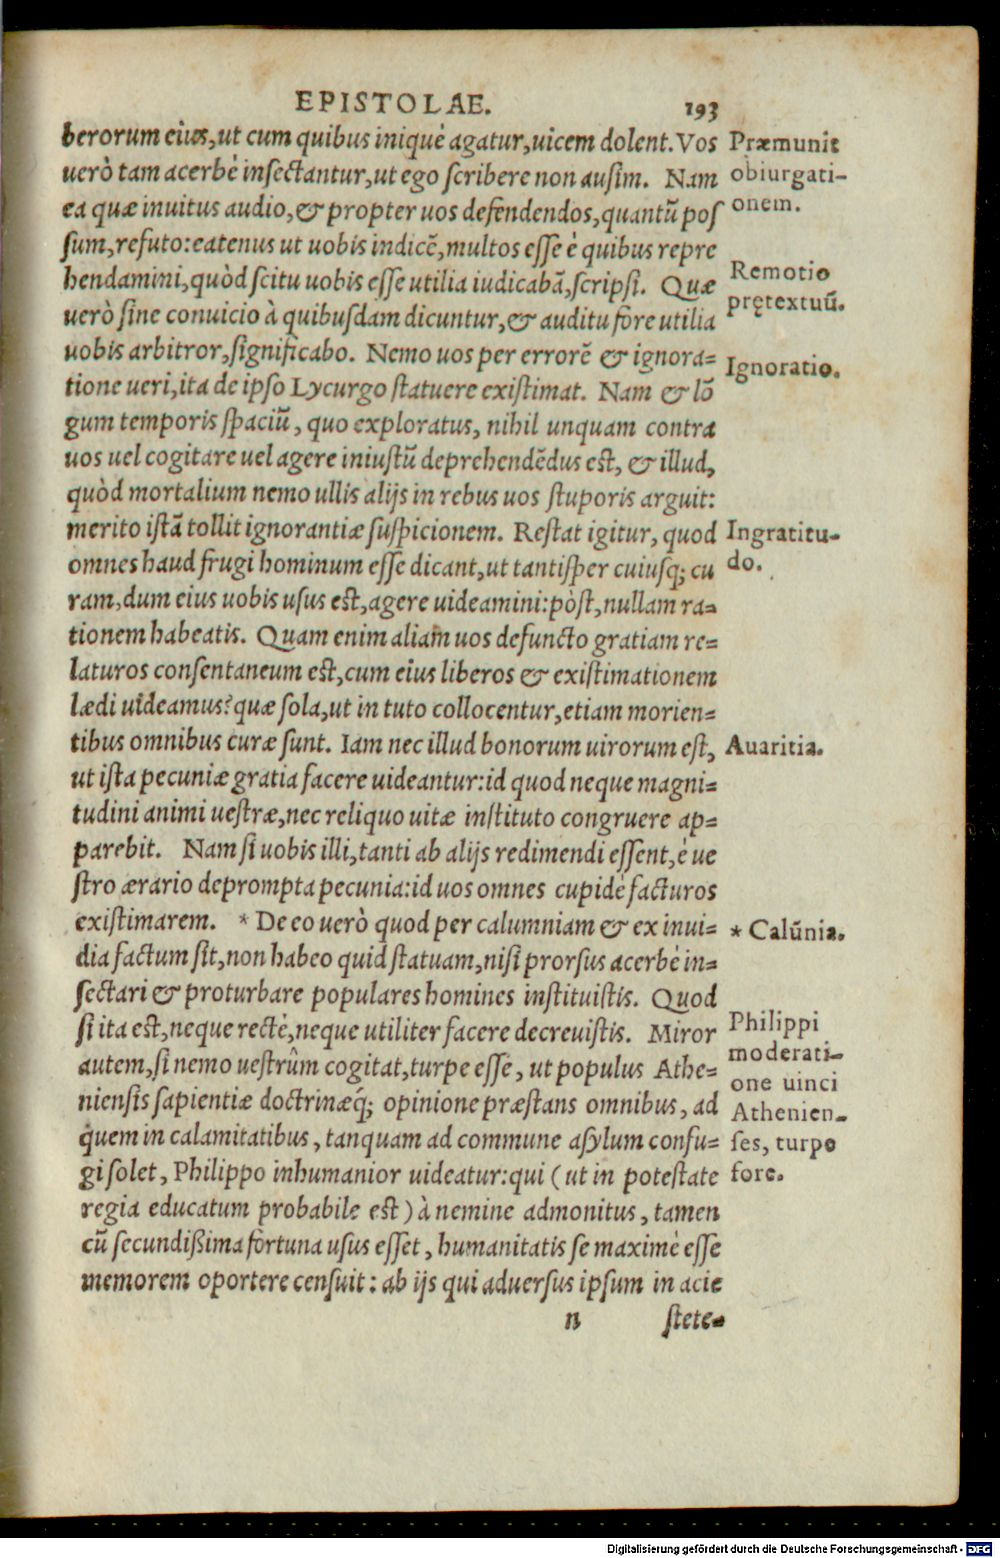 EPISTOLAE. 193
berorum eius, ut cum quibus iniquè agatur, uicem dolent. Vos
uerò tam acerbè insectantur, ut ego scribere non ausim. Nam
ea quæ inuitus audio, & propter uos defendendos, quantũ pos
sum, refuto: eatenus ut uobis indicẽ, multos esse è quibus repre
hendamini, quòd scitu uobis esse utilia iudicabã, scripsi. Quæ
uerò sine conuicio à quibusdam dicuntur, & auditu fore utilia
uobis arbitror, significabo. Nemo uos per errorẽ & ignora=
tione ueri, ita de ipso Lycurgo statuere existimat. Nam & lõ
gum temporis spaciũ, quo exploratus, nihil unquam contra
uos uel cogitare uel agere iniustũ deprehendẽdus est, & illud,
quòd mortalium nemo ullis alijs in rebus uos stuporis arguit:
merito istã tollit ignorantiæ suspicionem. Restat igitur, quod
omnes haud frugi hominum esse dicant, ut tantisper cuiusq; cu
ram, dum eius uobis usus est, agere uideamini: pòst, nullam ra=
tionem habeatis. Quam enim aliam uos defuncto gratiam re=
laturos consentaneum est, cum eius liberos & existimationem
lædi uideamus? quæ sola, ut in tuto collocentur, etiam morien=
tibus omnibus curæ sunt. Iam nec illud bonorum uirorum est,
ut ista pecuniæ gratia facere uideantur: id quod neque magni=
tudini animi uestræ, nec reliquo uitæ instituto congruere ap=
parebit. Nam si uobis illi, tanti ab alijs redimendi essent, è ue
stro ærario deprompta pecunia: id uos omnes cupidè facturos
existimarem. * De eo uerò quod per calumniam & ex inui=
dia factum sit, non habeo quid statuam, nisi prorsus acerbè in=
sectari & proturbare populares homines instituistis. Quod
si ita est, neque rectè, neque utiliter facere decreuistis. Miror
autem, si nemo uestrûm cogitat, turpe esse, ut populus Athe=
niensis sapientiæ doctrinæq́; opinione præstans omnibus, ad
quem in calamitatibus, tanquam ad commune asylum confu=
gi solet, Philippo inhumanior uideatur: qui (ut in potestate
regia educatum probabile est) à nemine admonitus, tamen
cũ secundißima fortuna usus esset, humanitatis se maximè esse
memorem oportere censuit: ab ijs qui aduersus ipsum in acie
n stete=
Præmunit
obiurgati-
onem.
Remotio
prętextuũ.
Ignoratio.
Ingratitu-
do.
Auaritia.
* Calũnia.
Philippi
moderati-
one uinci
Athenien-
ses, turpe
fore.
Digitalisierung gefördert durch die Deutsche Forschungsgemeinschaft - DFG